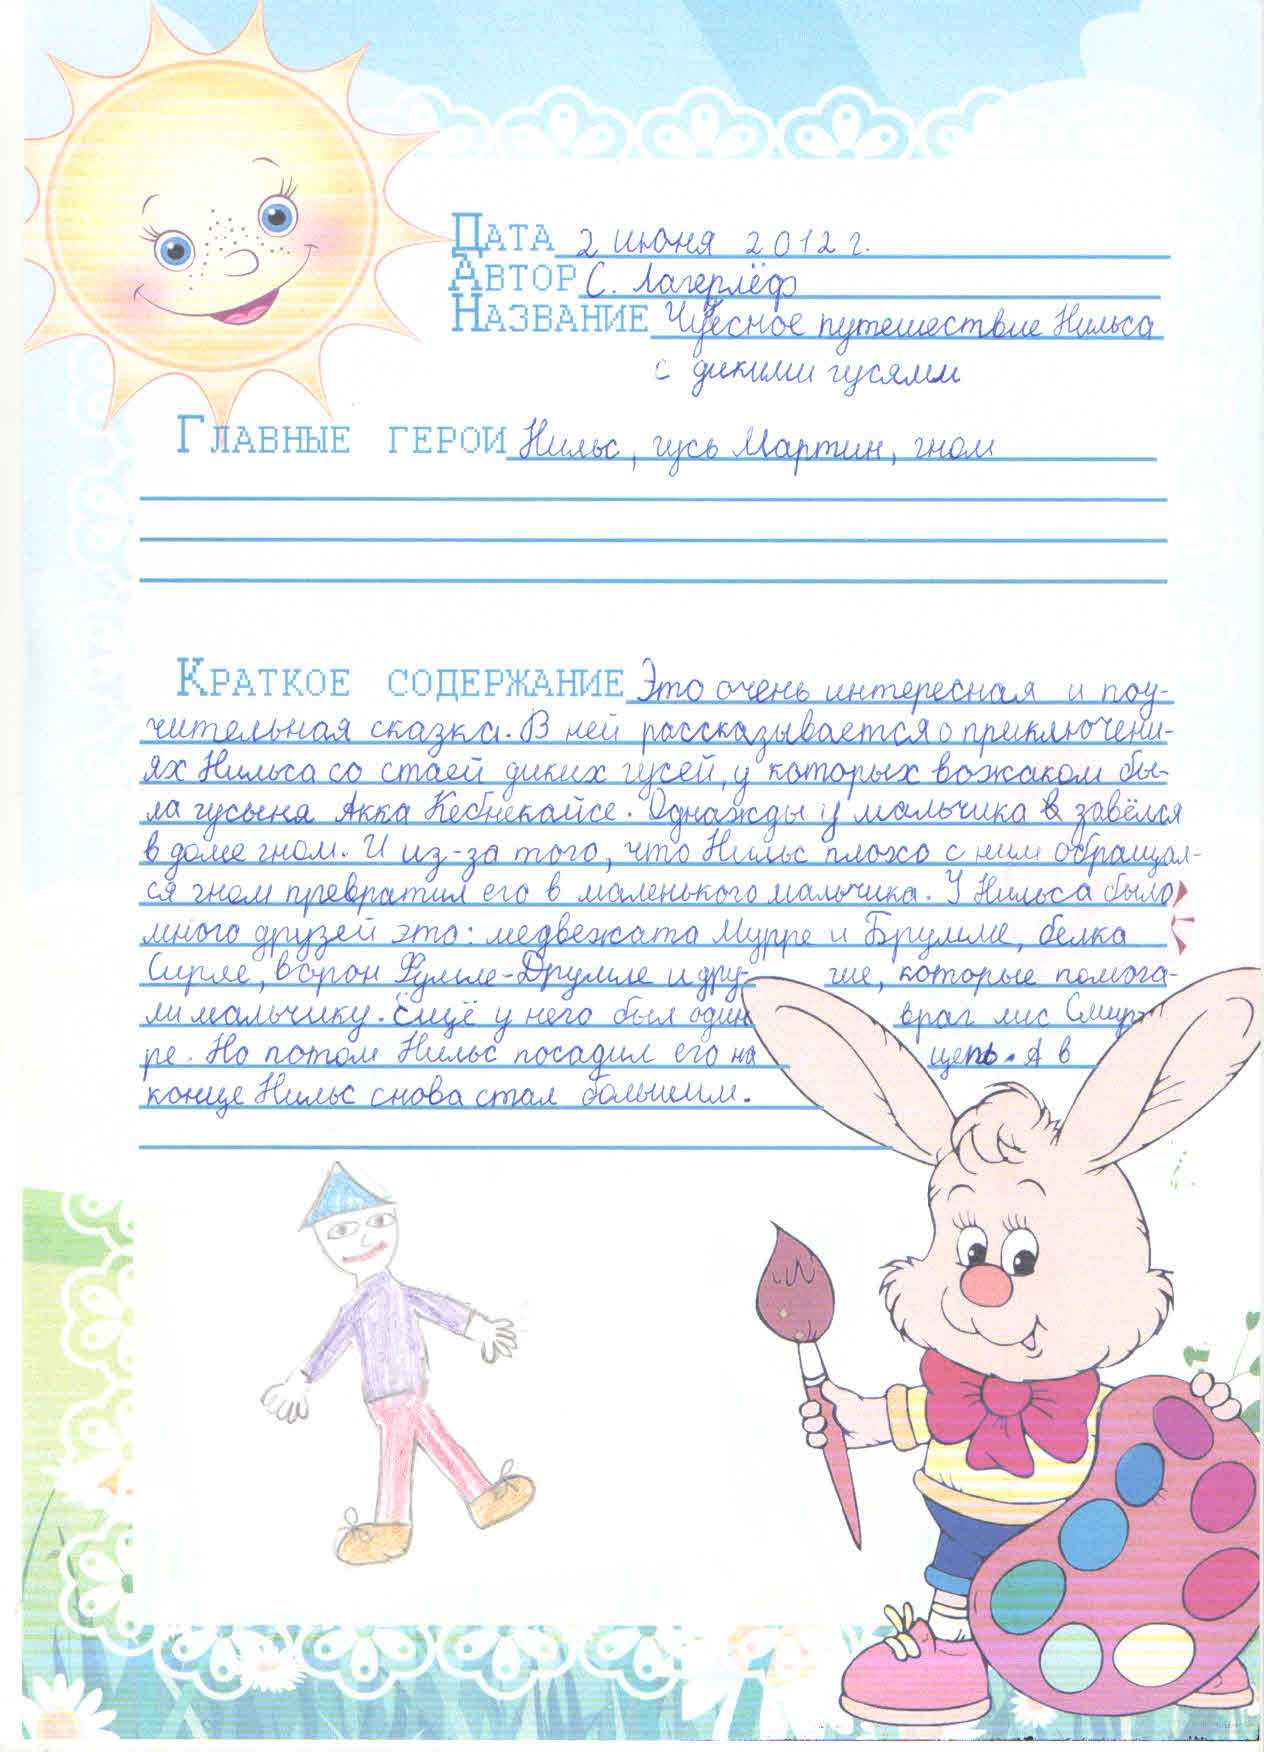 Дата 2 июня 2012 г.
Автор С. Лагерлёф
Название Чудесное путешествие Нильса
с дикими гусями
Главные герои Нильс, гусь Мартин, гном
Краткое содержание Это очень интересная и поу-
чительная сказка. В ней рассказывается о приключени-
ях Нильса со стаей диких гусей, у которых вожаком бы-
ла гусыня Акка Кебнекайсе. Однажды у мальчика в завёлся
в доме гном. И из-за того, что Нильс плохо с ним обращал-
ся гном превратил его в маленького мальчика. У Нильса было
много друзей это: медвежата Мурре и Брумме, белка
Сирле, ворон Фумле-Друмле и дру- гие, которые помога-
ли мальчику. Ещё у него был один враг лис Смир
ре. Но потом Нильс посадил его на цепь. А в
конце Нильс снова стал большим.